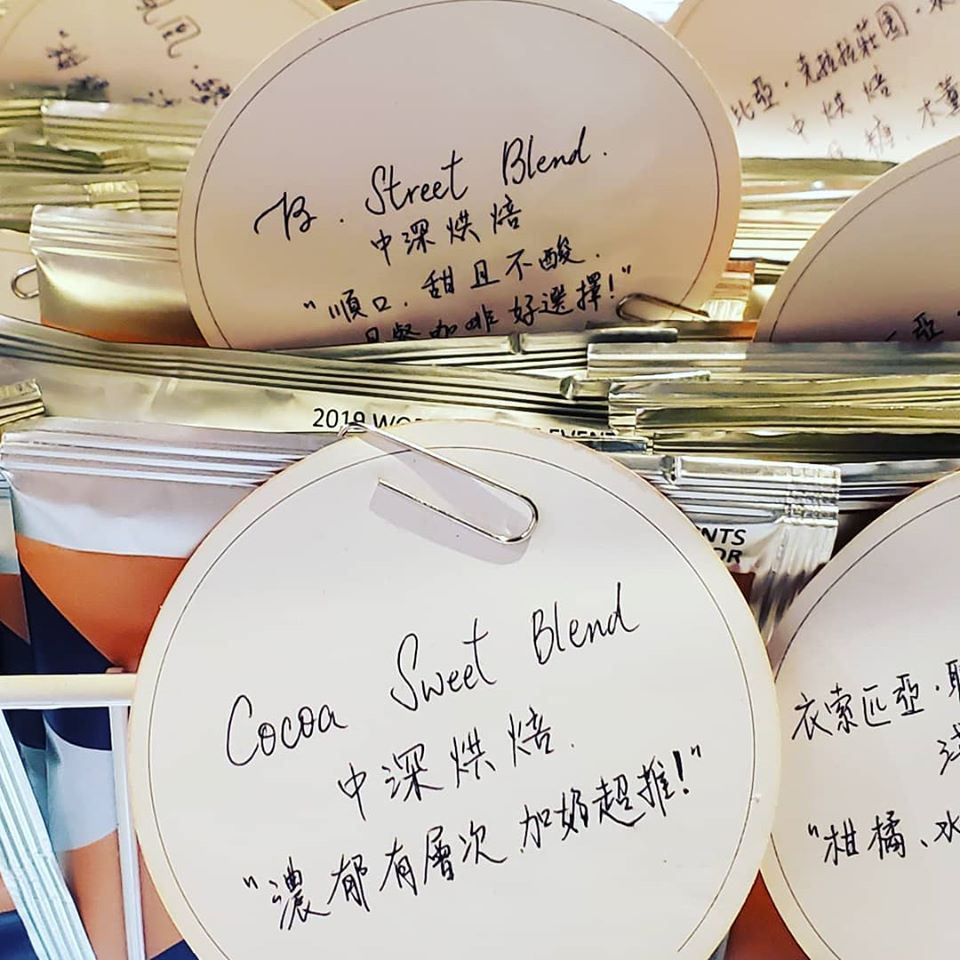 比亞・克拉拉莊園・
中烘焙
糖、木
B. Street Blend.
中深烘焙
"順口.甜且不酸.
早餐咖啡好選擇!"
亞
2019
EVENT
NTS
OR
Cocoa Sweet Blend
中深烘焙.
"濃郁有層次.加奶超推!"
衣索匹亞・
"柑橘、水